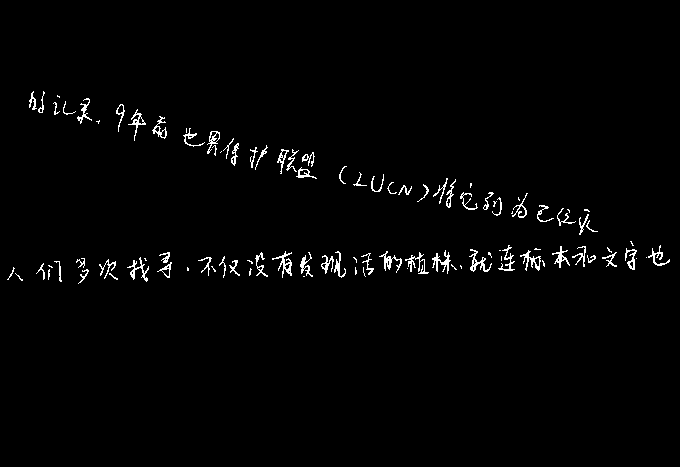 的记录，9年前世界保护联盟（IUCN）将它列为已经灭
人们多次找寻，不仅没有发现活的植株，就连标本和文字也